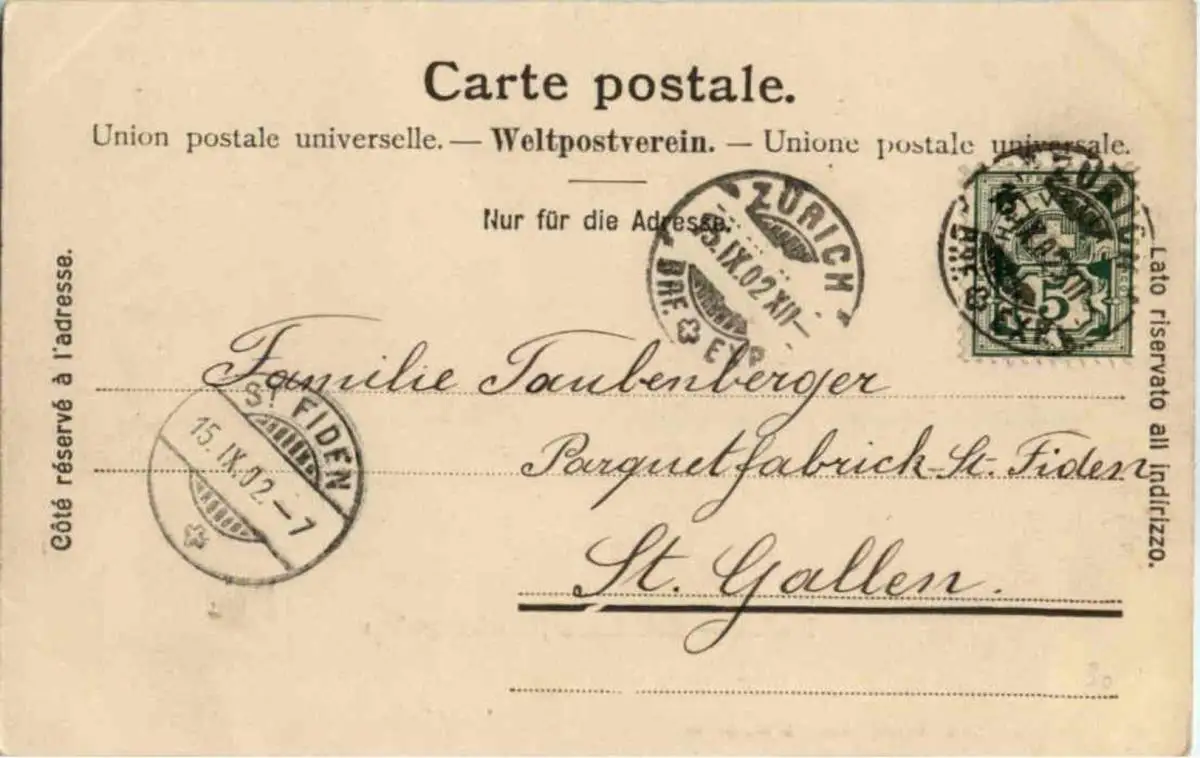 Carte postale.
Union postale universelle. — Weltpostverein. — Unione postale universale.
Nur für die Adresse.
ZÜRICH
15.IX.02.XII—
BRF. EXP.
ZÜRICH
IX.02
BRF. EXP.
HELVETIA
5
Côté réservé à l'adresse.
Lato riservato all indirizzo.
Familie Taubenberger
ST. FIDEN
15.IX.02.—7
Parquetfabrick-St. Fiden
St. Gallen.